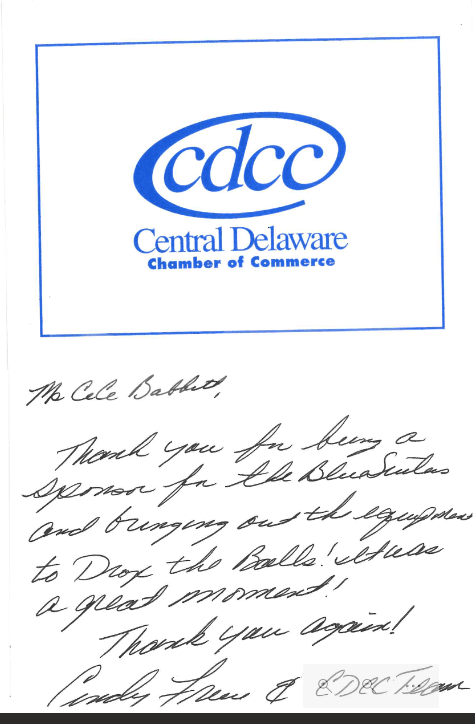 cdcc
Central Delaware
Chamber of Commerce
Ms CeCe Babbitt,
Thank you for being a
sponsor for the
and bringing out the equipment
to Drop the Balls! It was
a great moment!
Thank you again!
Cindy & CDCC Team